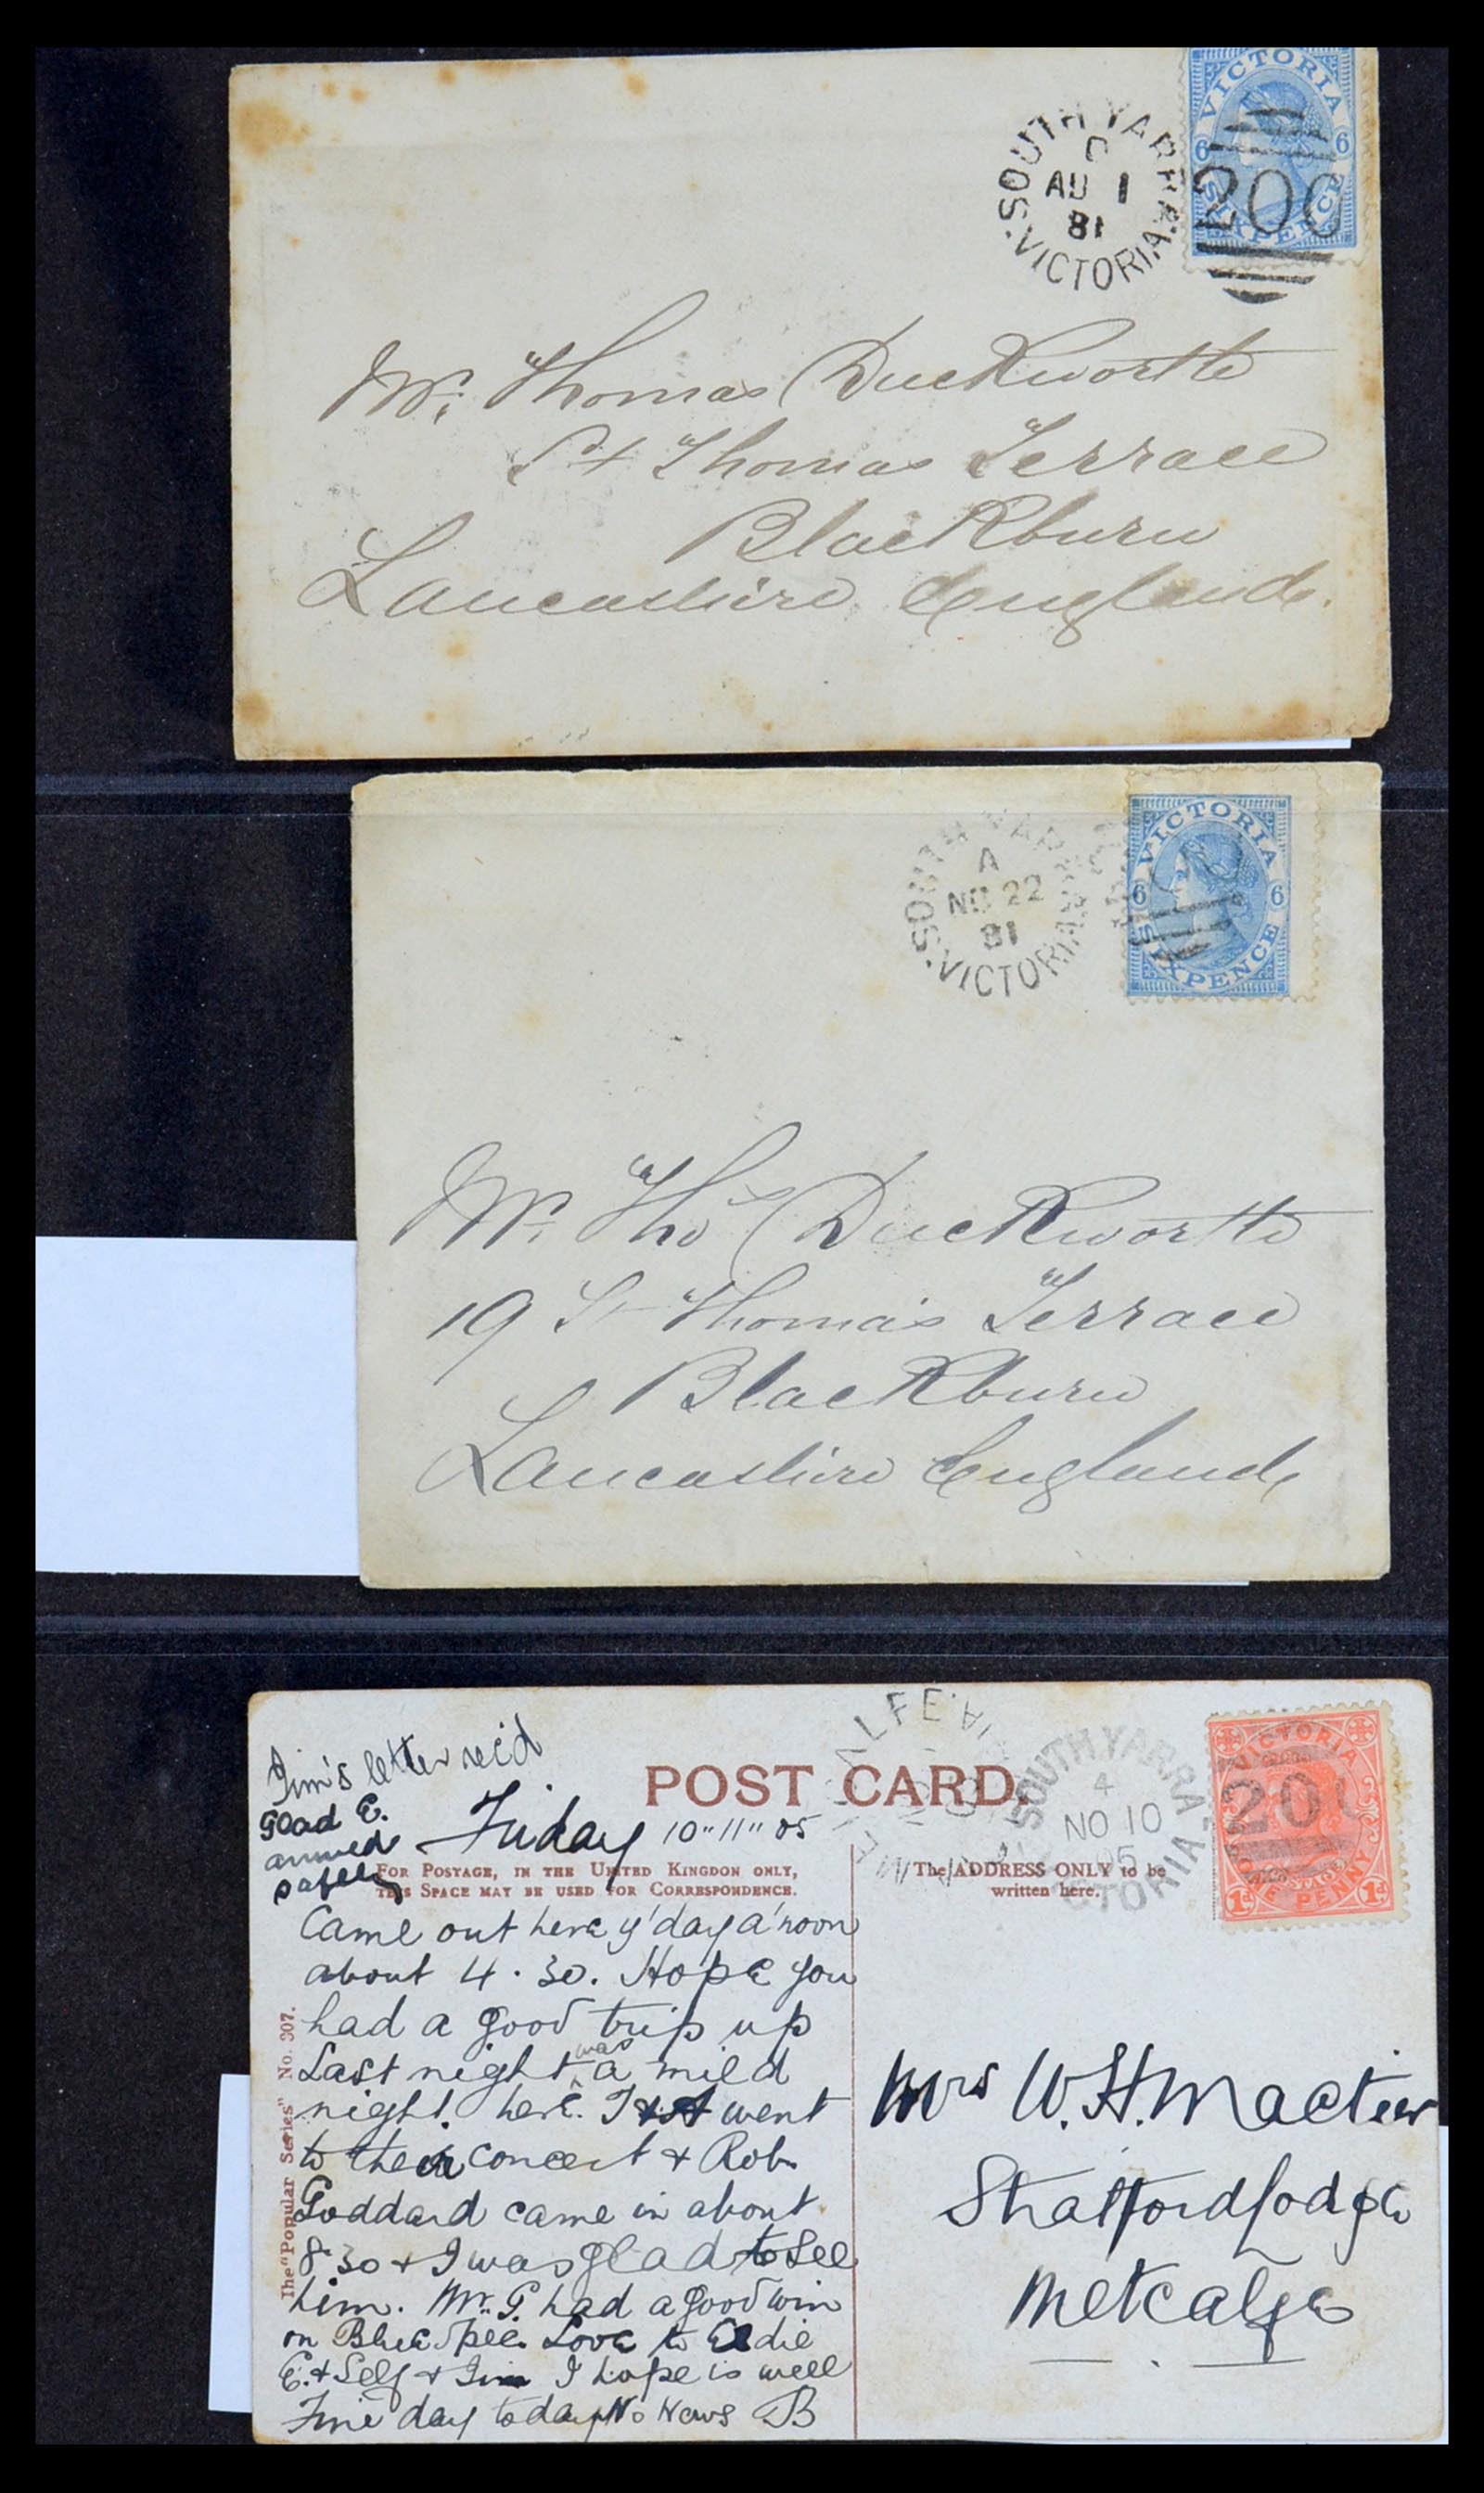 VICTORIA
6 6
SIXPENCE
SOUTH YARRA
C
AU 1
81
VICTORIA
200
Mr. Thomas Duckworth
St Thomas Terrace
Blackburn
Lancashire England.
VICTORIA
6 6
SIXPENCE
SOUTH YARRA
A
NO 22
81
VICTORIA
Mr. Thos Duckworth
19 St Thomas Terrace
Blackburn
Lancashire England
POST CARD.
SOUTH YARRA
4
NO 10
05
VICTORIA
VICTORIA
20
POSTAGE
ONE PENNY
1d 1d
Jim's letter rec'd
Glad E.
arrived
safely
Friday 10"11"05
FOR POSTAGE, IN THE UNITED KINGDON ONLY,
THIS SPACE MAY BE USED FOR CORRESPONDENCE.
The ADDRESS ONLY to be
written here.
Came out here y'day a'noon
about 4.30. Hope you
had a good trip up
Last night was a mild
night here. I & A went
to their concert & Rob.
Goddard came in about
8.30 & I was glad to see
him. Mr. G. had a good win
on Blue Spec. Love to Eadie
E. & Self & Jim I hope is well
Fine day today No News B
The "Popular Series" No. 307.
Mrs W. H. Mactier
Stratford Lodge
Metcalfe